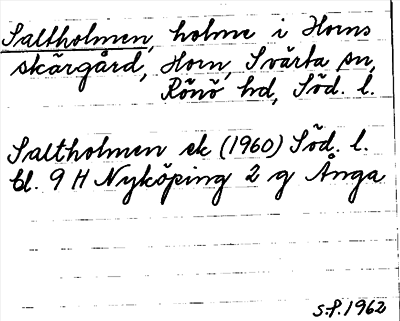 Saltholmen, holme i Horns
skärgård, Horn, Svärta sn,
Rönö hd, Söd. l.
Saltholmen ek (1960) Söd. l.
bl. 9 H Nyköping 2 g Ånga
S.P. 1962